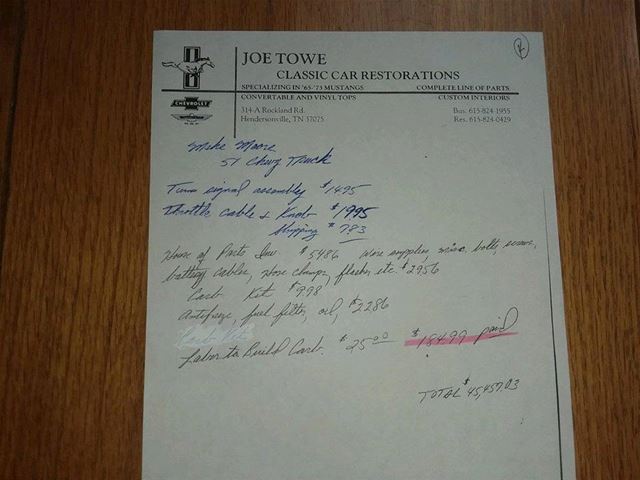 JOE TOWE
CLASSIC CAR RESTORATIONS
SPECIALIZING IN '65-'73 MUSTANGS COMPLETE LINE OF PARTS
CONVERTABLE AND VINYL TOPS CUSTOM INTERIORS
CHEVROLET
314-A Rockland Rd. Bus. 615-824-1955
Hendersonville, TN 37075 Res. 615-824-0429
Mike Moore
51 Chevy Truck
Turn signal assembly $1495
Throttle cable & Knob $1995
Shipping $783
House of Parts Inv $5486 wire supplies, misc, bolts, screws,
battery cables, hose clamps, flasher, etc. $2956
Carb Kit $998
Antifreeze, fuel filter, oil, $2286
Labor to Build Carb. $25.00 $18499 paid
TOTAL $45,457.03